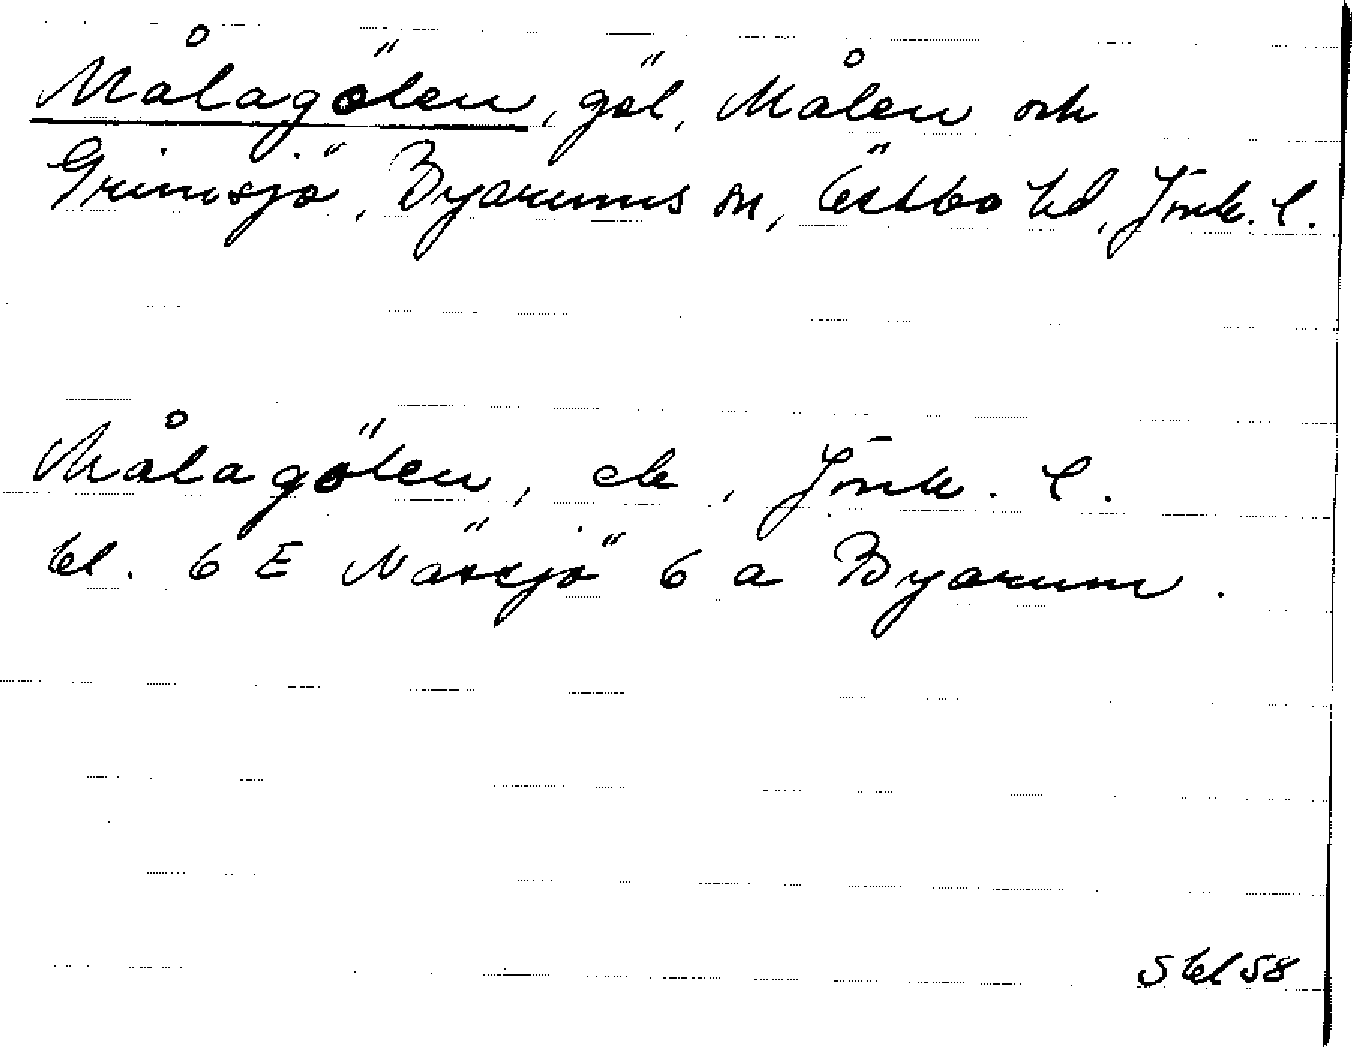 Målagölen, göl, Målen och
Grimsjö, Byarums sn, Östbo hd, Jönk. l.
Målagölen, ek, Jönk. l.
bl. 6 E Nässjö 6 a Byarum.
5 bl 58